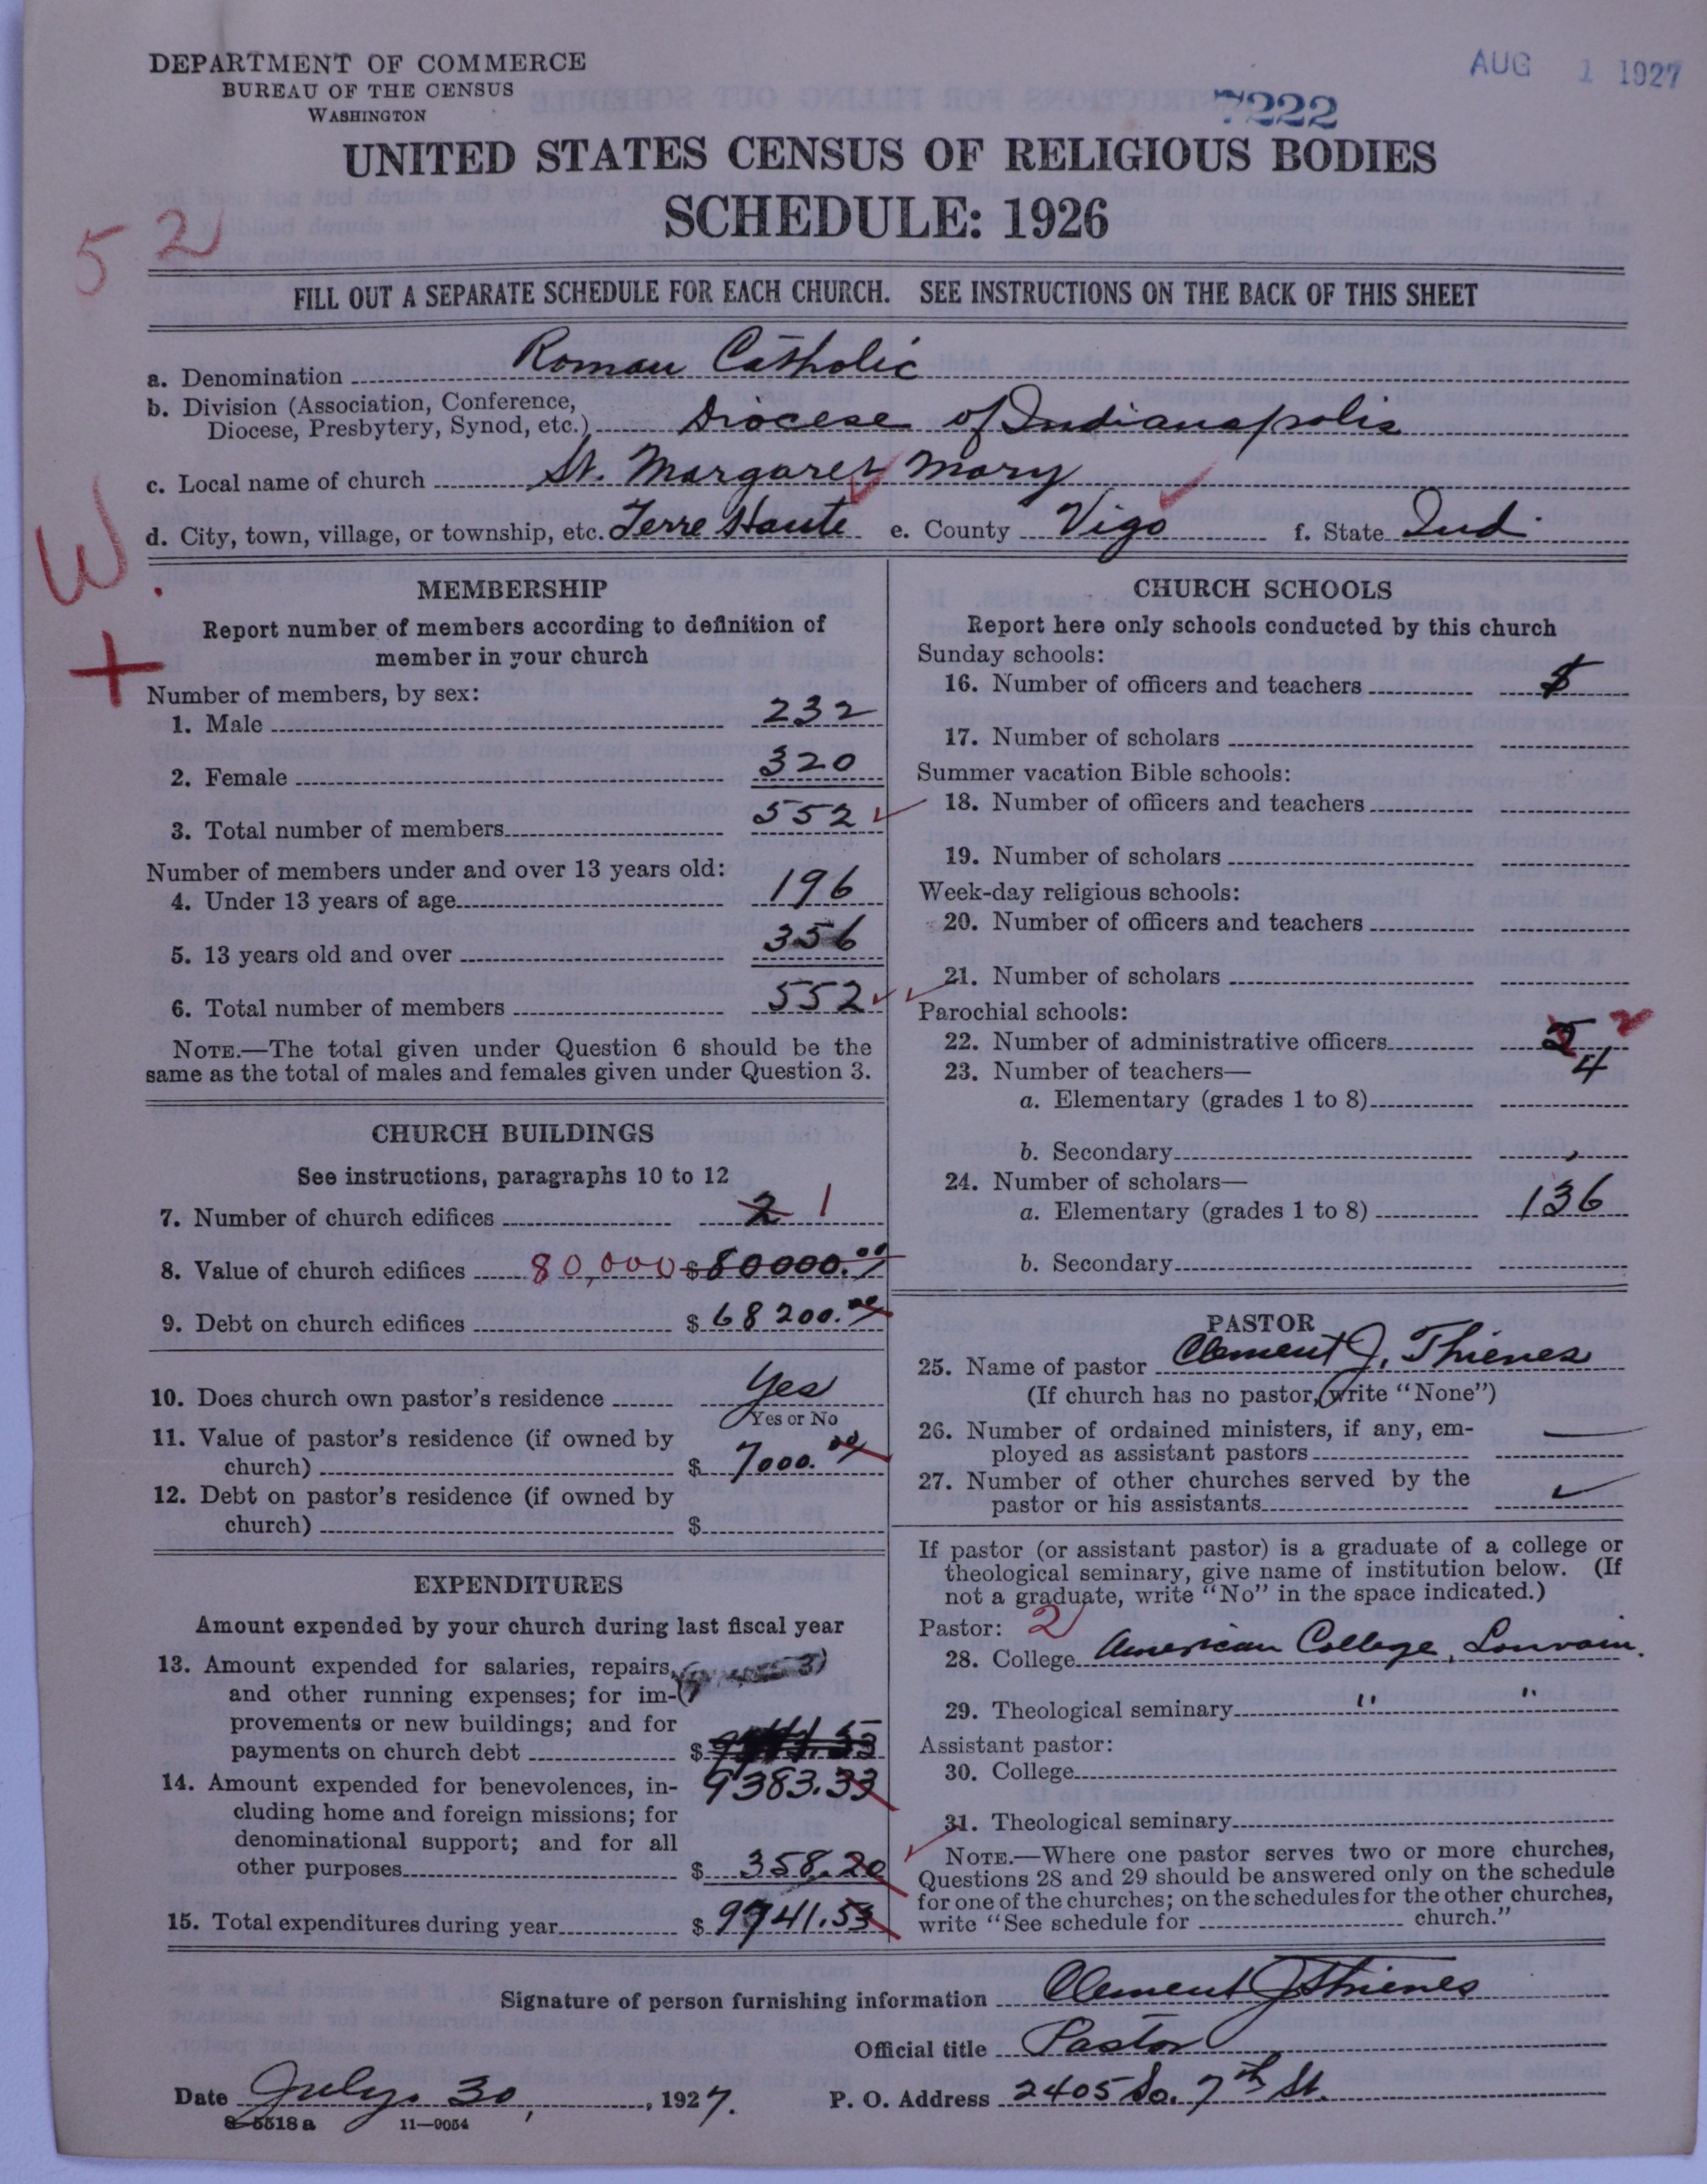 DEPARTMENT OF COMMERCE
BUREAU OF THE CENSUS
WASHINGTON
AUG 1 1927
7222
UNITED STATES CENSUS OF RELIGIOUS BODIES
SCHEDULE: 1926
52
FILL OUT A SEPARATE SCHEDULE FOR EACH CHURCH. SEE INSTRUCTIONS ON THE BACK OF THIS SHEET
a. Denomination Roman Catholic
b. Division (Association, Conference,
Diocese, Presbytery, Synod, etc.) Diocese of Indianapolis
c. Local name of church St. Margaret Mary
d. City, town, village, or township, etc. Terre Haute e. County Vigo f. State Ind.
W.
+
MEMBERSHIP
Report number of members according to definition of
member in your church
Number of members, by sex:
1. Male 232
2. Female 320
3. Total number of members 552
Number of members under and over 13 years old:
4. Under 13 years of age 196
5. 13 years old and over 356
6. Total number of members 552
NOTE.—The total given under Question 6 should be the
same as the total of males and females given under Question 3.
CHURCH BUILDINGS
See instructions, paragraphs 10 to 12
7. Number of church edifices 2 1
8. Value of church edifices 80,000 $ 80000.00
9. Debt on church edifices $ 68200.00
10. Does church own pastor's residence Yes
Yes or No
11. Value of pastor's residence (if owned by
church) $ 7000.00
12. Debt on pastor's residence (if owned by
church) $
EXPENDITURES
Amount expended by your church during last fiscal year
13. Amount expended for salaries, repairs,
and other running expenses; for im-
provements or new buildings; and for
payments on church debt $
9383.33
14. Amount expended for benevolences, in-
cluding home and foreign missions; for
denominational support; and for all
other purposes $ 358.20
15. Total expenditures during year $ 9741.53
CHURCH SCHOOLS
Report here only schools conducted by this church
Sunday schools:
16. Number of officers and teachers
17. Number of scholars
Summer vacation Bible schools:
18. Number of officers and teachers
19. Number of scholars
Week-day religious schools:
20. Number of officers and teachers
21. Number of scholars
Parochial schools:
22. Number of administrative officers 2
23. Number of teachers— 4
a. Elementary (grades 1 to 8)
b. Secondary
24. Number of scholars—
a. Elementary (grades 1 to 8) 136
b. Secondary
PASTOR
25. Name of pastor Clement J. Thienes
(If church has no pastor, write "None")
26. Number of ordained ministers, if any, em-
ployed as assistant pastors
27. Number of other churches served by the
pastor or his assistants
If pastor (or assistant pastor) is a graduate of a college or
theological seminary, give name of institution below. (If
not a graduate, write "No" in the space indicated.)
Pastor: 2
28. College American College, Louvain.
29. Theological seminary " "
Assistant pastor:
30. College
31. Theological seminary
NOTE.—Where one pastor serves two or more churches,
Questions 28 and 29 should be answered only on the schedule
for one of the churches; on the schedules for the other churches,
write "See schedule for church."
Signature of person furnishing information Clement J Thienes
Official title Pastor
Date July 30, 1927. P. O. Address 2405 So. 7th St.
8-5518a 11-9054